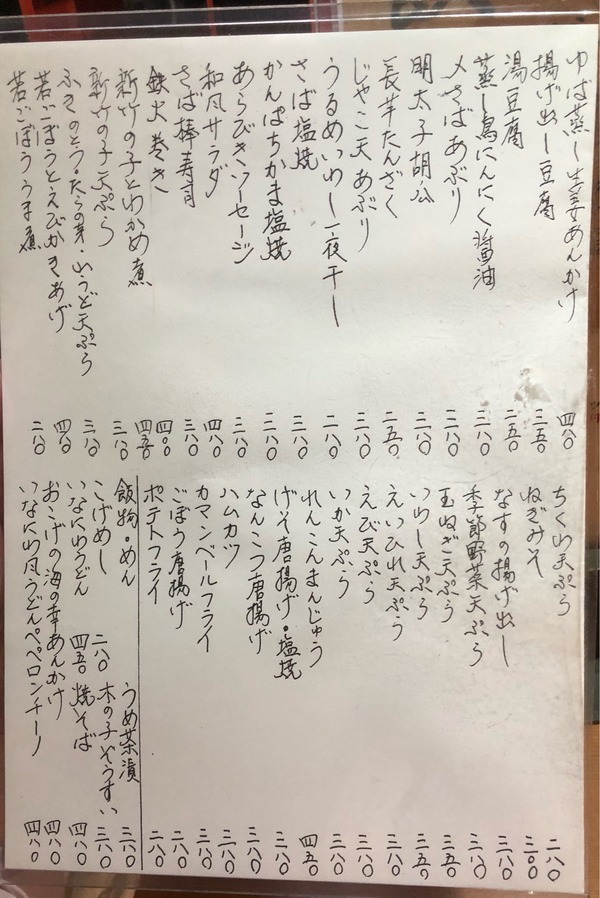 ゆば蒸し生姜あんかけ 四八〇
揚げ出し豆腐 三五〇
湯豆腐 二五〇
蒸し鳥にんにく醤油 三八〇
〆さばあぶり 二八〇
明太子胡瓜 三八〇
長芋たんざく 二五〇
じゃこ天あぶり 三八〇
うるめいわし一夜干し 二八〇
さば塩焼 三八〇
かんぱちかま塩焼 二八〇
あらびきソーセージ 三八〇
和風サラダ 四八〇
さば棒寿司 三八〇
鉄火巻き 四〇〇
新竹の子とわかめ煮 四五〇
新竹の子天ぷら 三八〇
ふきのとう・たらの芽・山うど天ぷら 三八〇
若ごぼうとえびかきあげ 四八〇
若ごぼううま煮 二八〇
ちくわ天ぷら 二八〇
ねぎみそ 三〇〇
なすの揚げ出し 三八〇
季節野菜天ぷら 三八〇
玉ねぎ天ぷら 二五〇
いわし天ぷら 三五〇
えいひれ天ぷら 三八〇
えび天ぷら 三八〇
いか天ぷら 三八〇
れんこんまんじゅう 四五〇
げそ唐揚げ・塩焼 三八〇
なんこつ唐揚げ 二八〇
ハムカツ 二八〇
カマンベールフライ 三八〇
ごぼう唐揚げ 二八〇
ポテトフライ 二八〇
飯物・めん うめ茶漬 三八〇
こげめし 二八〇 木の子ぞうすい 三八〇
いなにわうどん 四五〇 焼そば 四八〇
おこげの海の幸あんかけ 四八〇
いなにわ風うどんペペロンチーノ 四八〇